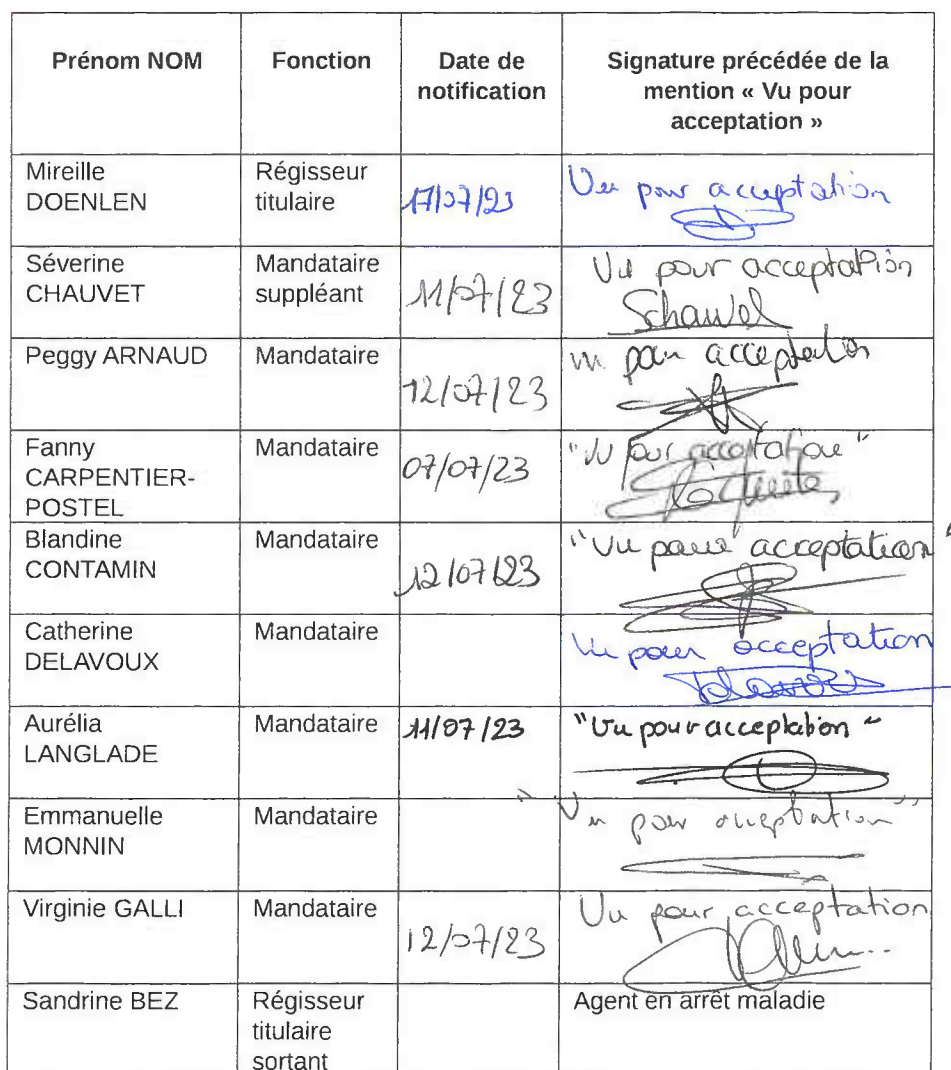 Prénom NOM
Fonction
Date de
notification
Signature précédée de la
mention « Vu pour
acceptation »
Mireille
DOENLEN
Régisseur
titulaire
17/07/23
Vu pour acceptation
Séverine
CHAUVET
Mandataire
suppléant
11/07/23
Vu pour acceptation
Peggy ARNAUD
Mandataire
12/07/23
Vu pour acceptation
Fanny
CARPENTIER-
POSTEL
Mandataire
07/07/23
"Vu pour acceptation"
Blandine
CONTAMIN
Mandataire
12/07/23
"Vu pour acceptation"
Catherine
DELAVOUX
Mandataire
Vu pour acceptation
Aurélia
LANGLADE
Mandataire
11/07/23
"Vu pour acceptation"
Emmanuelle
MONNIN
Mandataire
"Vu pour acceptation"
Virginie GALLI
Mandataire
12/07/23
Vu pour acceptation
Sandrine BEZ
Régisseur
titulaire
sortant
Agent en arrêt maladie